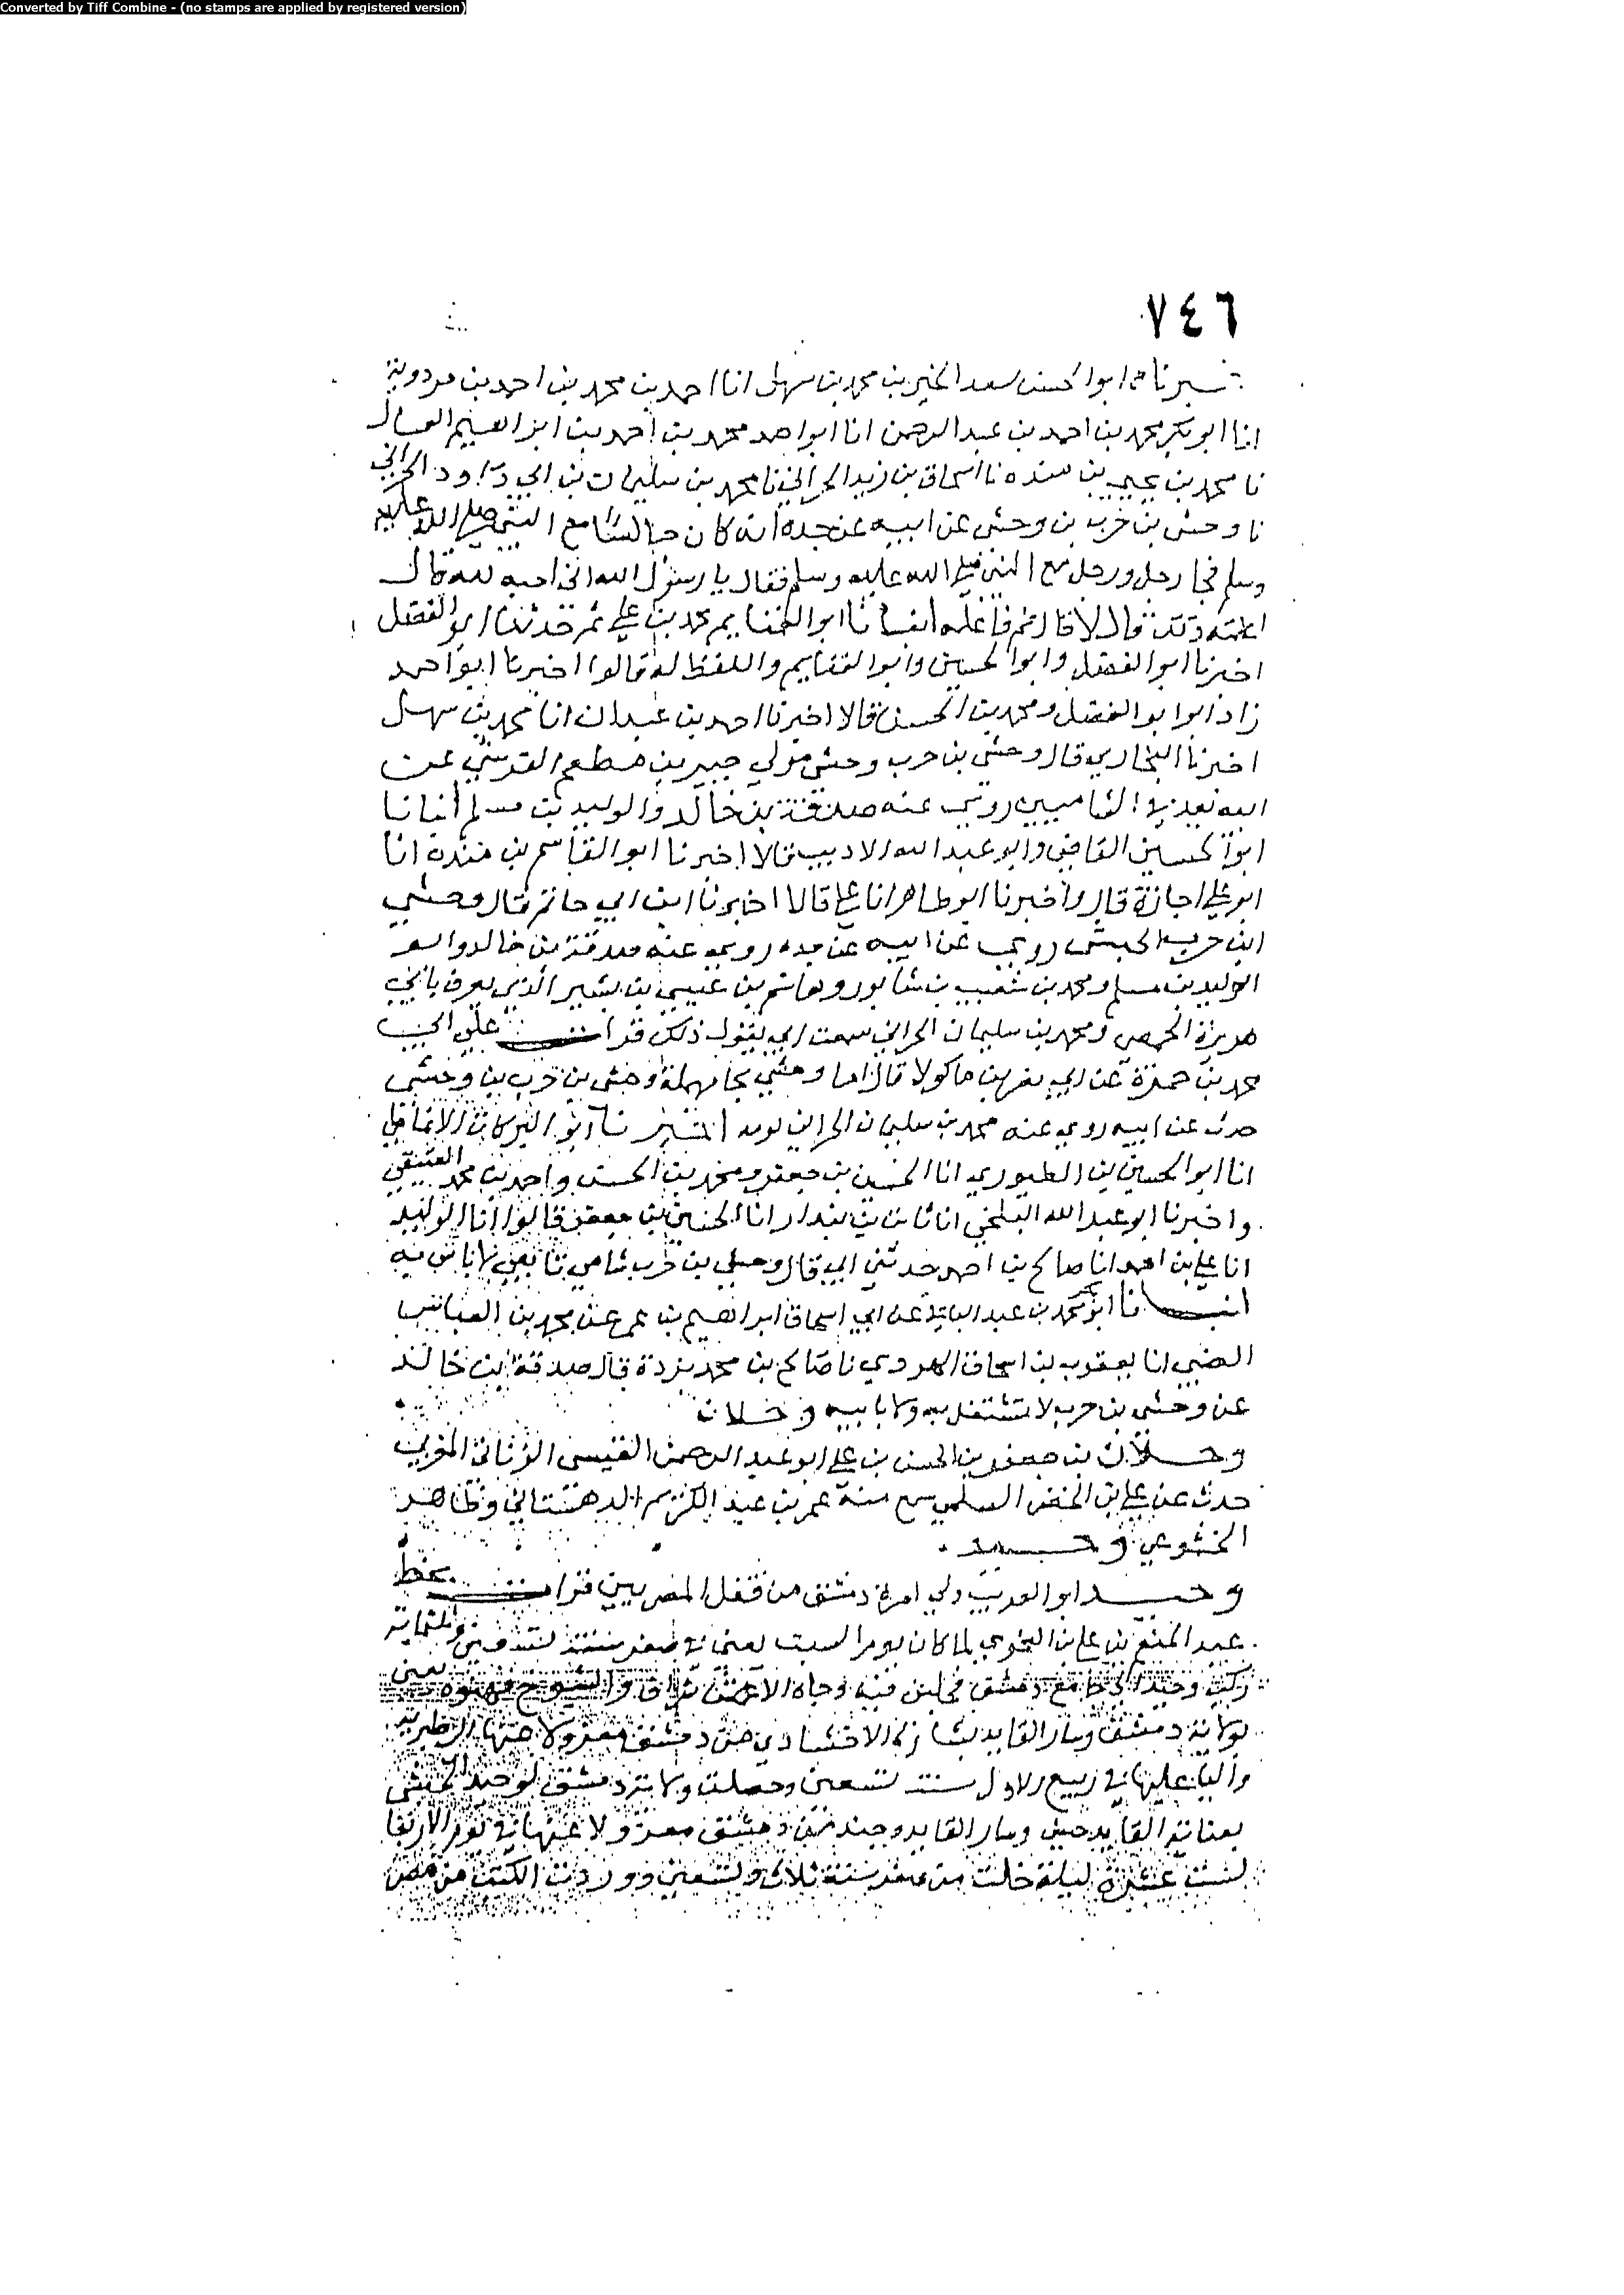 Converted by Tiff Combine - (no stamps are applied by registered version)
٧٤٦
ابوا لحسن سعد الخير بن محمد بن سهل انا احمد بن محمد بن احمد بن مردوية
انا ابو بكر محمد بن احمد بن عبد الرحمن انا ابوا حمد محمد بن احمد بن ابراهيم العسال
نا محمد بن يحيى بن منده نا اسحاق بن زيد الحراني نا محمد بن سليمان بن ابي داود الحراني
نا وحشى بن حرب بن وحشى عن ابيه عن جده انه كان جالسا مع النبي صلى الله عليه
وسلم فجا رجل ورجل مع النبي صلى الله عليه وسلم فقال يا رسول الله اني احبه لله قال
اعلمته ذلك قال لا قال قم فاعلمه انبانا ابوا لغنايم محمد بن علي ثم حدثنا ابو الفضل
اخبرنا ابوا الفضل وابوا لحسين وابوا لغنايم واللفظ له قالوا اخبرنا ابوا حمد
زاد ابوا بوا الفضل ومحمد بن الحسن قالا اخبرنا احمد بن عبدان انا محمد بن سهل
اخبرنا البخاري قال وحشى بن حرب وحشى مولي جبير بن مطعم القرشي عن
ابيه يعد في الشاميين روي عنه صدقة بن خالد والوليد بن مسلم انبانا
ابوا لحسين القاضي وابو عبد الله الاديب قالا اخبرنا ابو القاسم بن منده انا
ابو علي اجازة قال واخبرنا ابو طاهر انا علي قالا اخبرنا ابن ابي حاتم قال وحشي
ابن حرب الحبشى روي عن ابيه عن جده روي عنه صدقة بن خالد وابو
الوليد بن مسلم ومحمد بن شعيب بن شابور وهاشم بن عيسى بن بشير الذي يعرف بابي
هريرة الحمصي ومحمد بن سليمان الحراني سمعت ابي يقول ذلك قرات علي ابي
محمد بن حمزة عن ابي نصر بن ماكولا قال اما وحشي بحا مهملة وحشى بن حرب بن وحشى
حدث عن ابيه روي عنه محمد بن سليمان الحراني بومه اخبرنا ابو البركات الانماطي
انا ابوا لحسين بن الطيوري انا الحسين بن جعفر ومحمد بن الحسن واحمد بن محمد العتيقي
واخبرنا ابو عبد الله البلخي انا ثابت بن بندار انا الحسين بن جعفر قالوا انا الوليد
انا علي بن احمد انا صالح بن احمد حدثني ابي قال وحشي بن حرب شامي تابعي لا باس به
انبانا ابو بكر محمد بن عبد الباقي عن ابي اسحاق ابراهيم بن عمر عن محمد بن العباس
الضبي انا يعقوب بن اسحاق الهروي نا صالح بن محمد جزرة قال صدقة بن خالد
عن وحشى بن حرب لا تشتغل به ولا بابيه وخلان
وخلان بن جعفر بن الحسن بن علي ابو عبد الرحمن القيسى المغربي
حدث عن علي بن الخضر السلمي سمع منه عمر بن عبد الكريم الدهستاني وطاهر
الخشوعي وحيد
وحيد ابو العرب ولي امرة دمشق من قبل المصريين قرات بخط
عبد المنعم بن علي بن النحوي لما كان يوم السبت يعني في صفر سنة
ركب وحيد الي جامع دمشق فجلس فيه وجاه الاشراف والشيوخ فهنوه يعني
بولاية دمشق وسار القايد بشارة الاخشيدي من دمشق معزولا عنها الي طبرية
واليا عليها في ربيع الاول سنة تسعين وحصلت ولاية دمشق لوحيد
القايد جيش وسار القايد وحيد من دمشق معزولا عنها في يوم الاربعا
لست عشرة ليلة خلت من صفر سنة ثلاث وتسعين ووردت الكتب من مصر